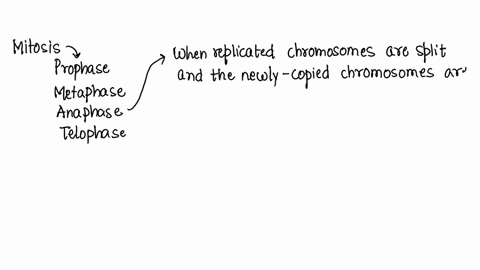 Mitosis
Prophase
Metaphase
Anaphase
Telophase
When replicated chromosomes are split
and the newly-copied chromosomes ar